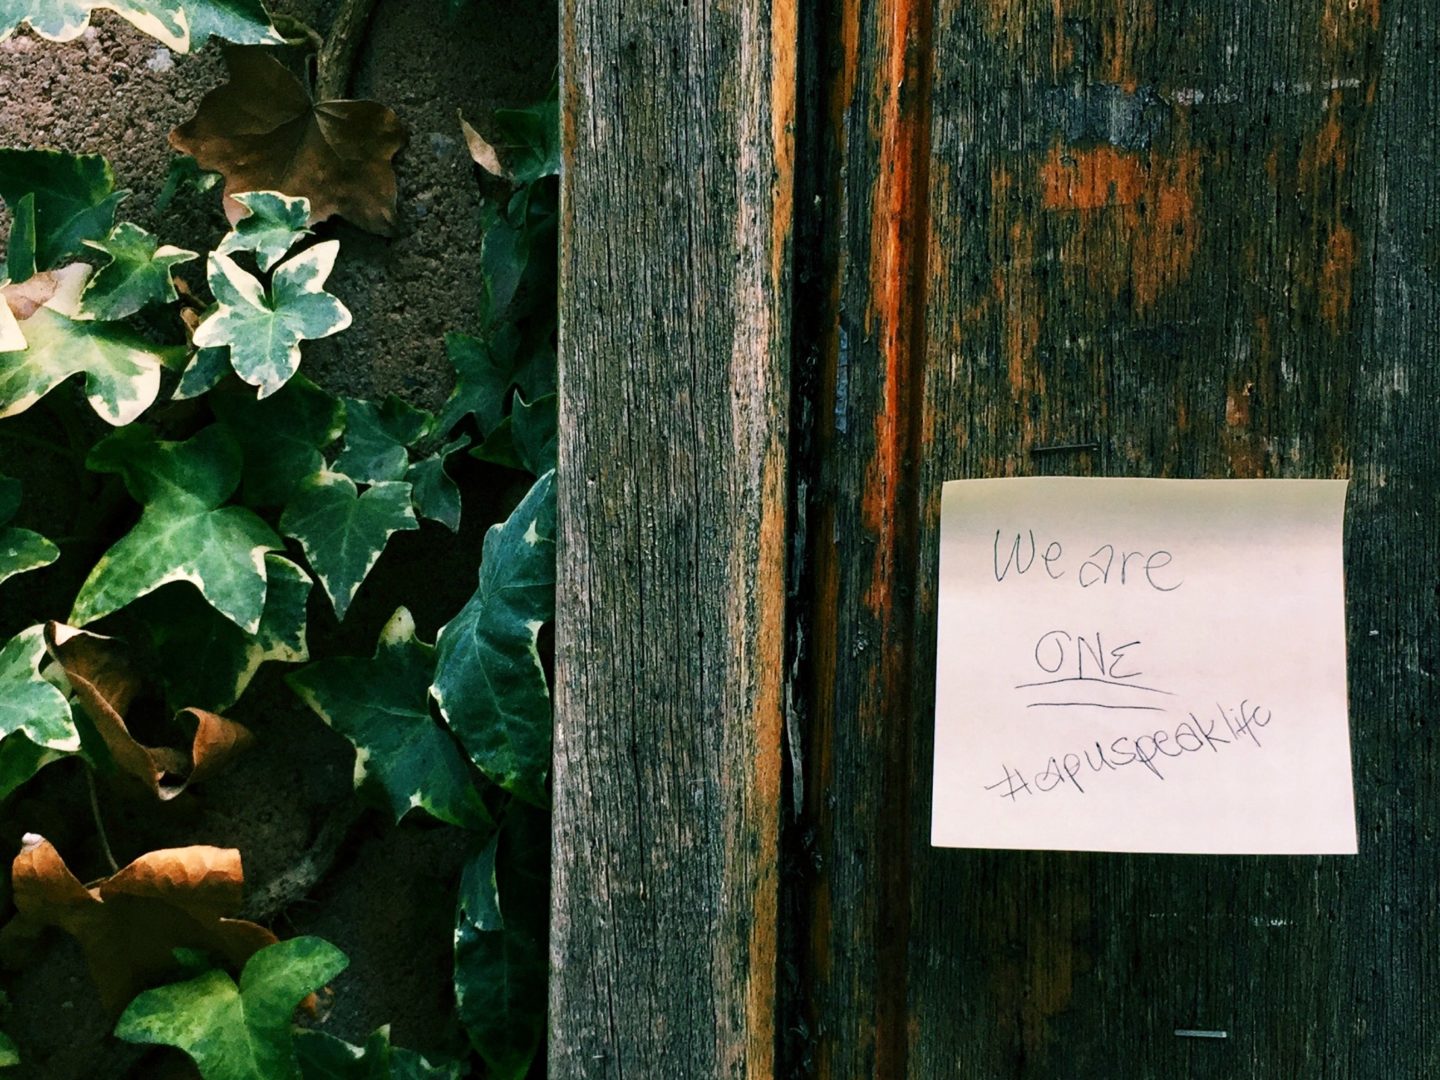 We are
ONE
#apuspeaklife